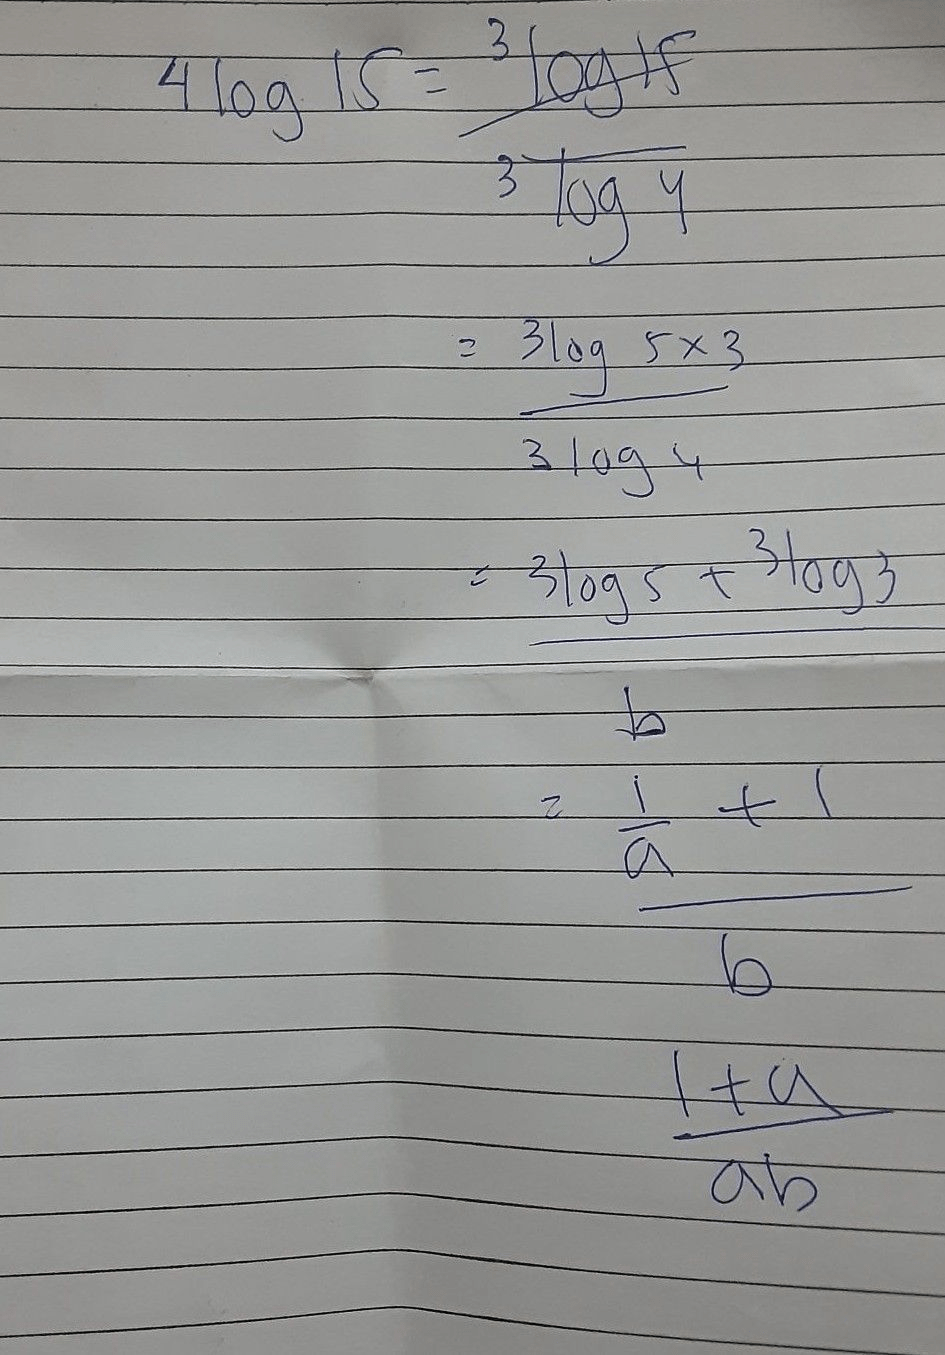 4 log 15 = 3 log 15
3 log 4
= 3 log 5 x 3
3 log 4
= 3 log 5 + 3 log 3
b
= 1 + 1
a
b
1 + a
ab